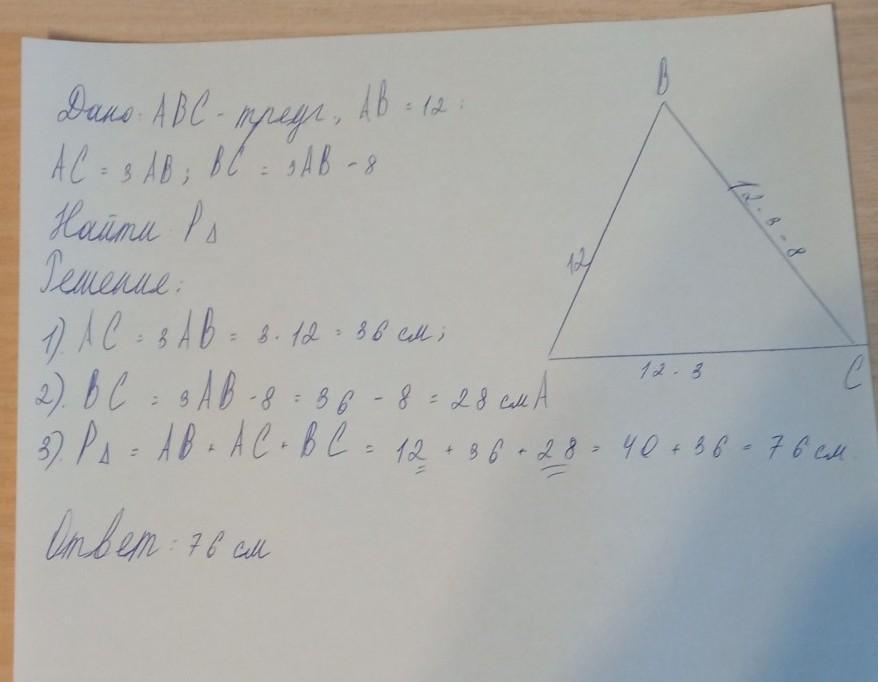 Дано: ABC - треуг., AB = 12;
AC = 3AB; BC = 3AB - 8
Найти P△
Решение:
1). AC = 3AB = 3·12 = 36 см;
2). BC = 3AB - 8 = 36 - 8 = 28 см
3). P△ = AB + AC + BC = 12 + 36 + 28 = 40 + 36 = 76 см
Ответ: 76 см
B
12
12·3-8
A
12·3
C